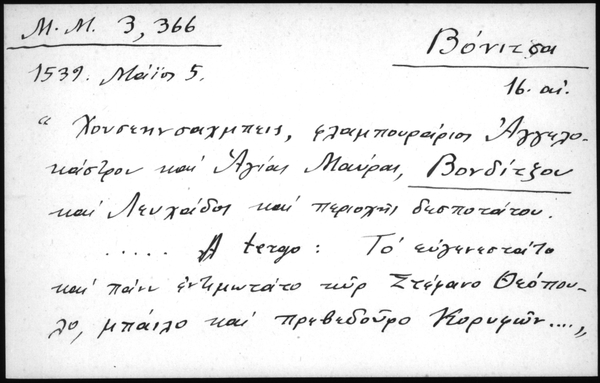 Μ.Μ. 3, 366
Βόνιτσα
1539. Μάϊος 5.
16. αἰ.
“ Χουσεηνσαχμπεις, φλαμπουράριος Ἀγγελο-
κάστρου καί Ἁγίας Μαύρας, Βονδίτζου
καί Λευκάδος καί περιοχῆς δεσποτάτου.
..... A tergo : Τό εὐγενεστάτο
καί πάνυ ἐντιμωτάτο κῦρ Στέφανο Θεόπου-
λο, μπάιλο καί πρεβεδοῦρο Κορυφῶν....„